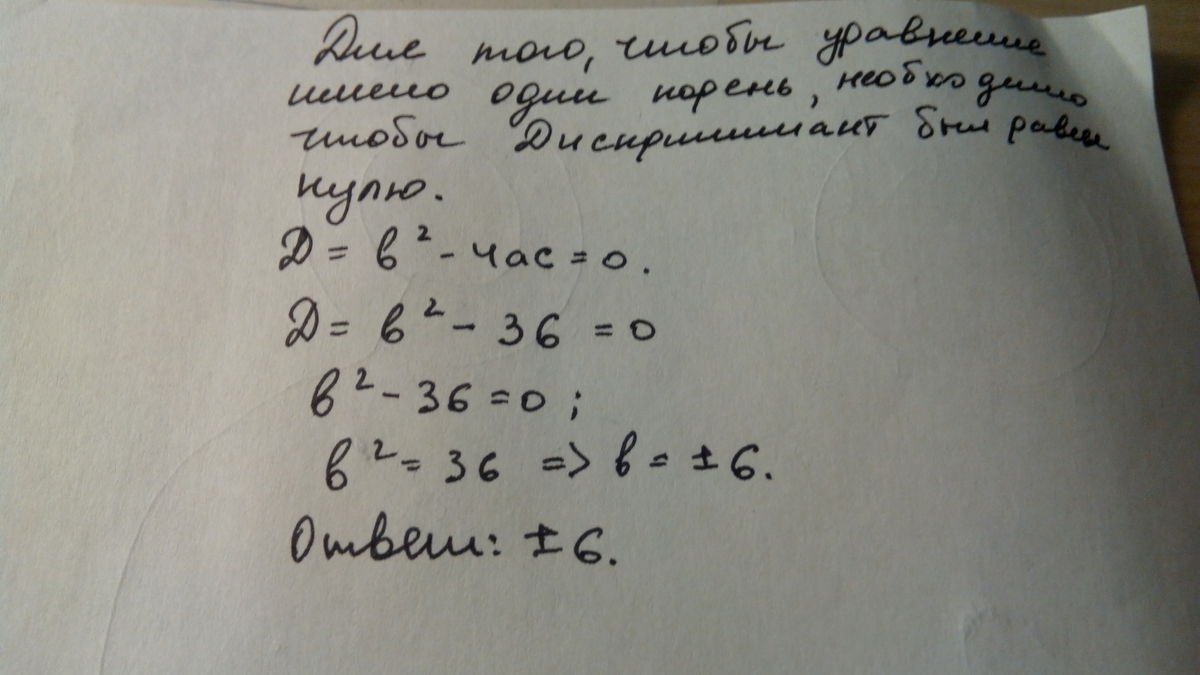 Для того, чтобы уравнение
имело один корень, необходимо
чтобы Дискриминант был равен
нулю.
Д = в² - 4ас = 0.
Д = в² - 36 = 0
в² - 36 = 0 ;
в² = 36 => в = ± 6.
Ответ: ± 6.